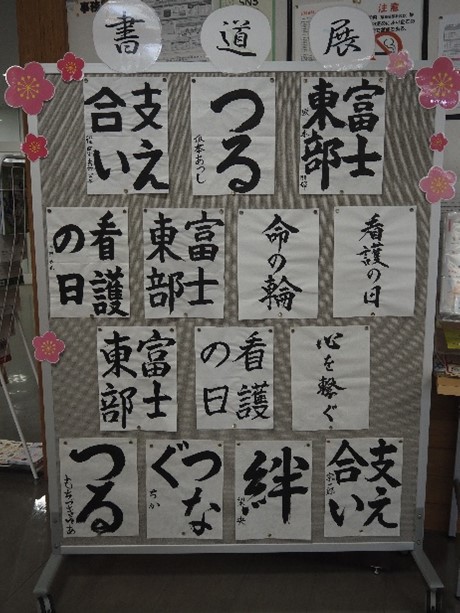 書道展
注意
富士
東部
つる
支え
合い
看護の日
命の輪
富士
東部
看護
の日
心を繋ぐ
看護
の日
富士
東部
支え
合い
絆
つな
ぐ
ちか
つる